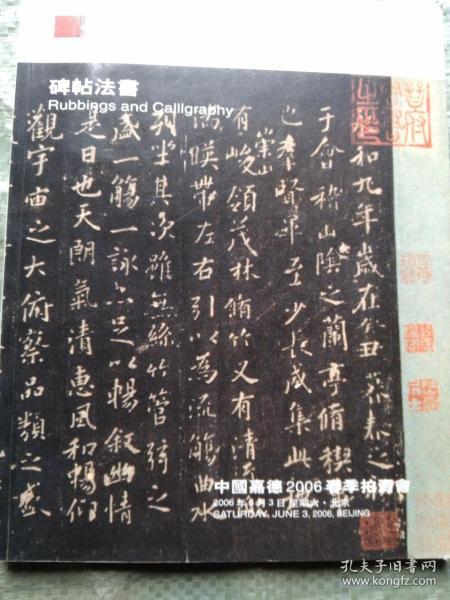 碑帖法書
Rubbings and Calligraphy
和九年歲在癸丑暮春之
于會稽山陰之蘭亭脩稧
也羣賢畢至少長咸集此
崇山
有峻領茂林脩竹又有清
湍暎帶左右引以為流觴曲水
列坐其次雖無絲竹管弦之
盛一觴一詠亦足以暢叙幽情
是日也天朗氣清惠風和暢仰
觀宇宙之大俯察品類之盛
中國嘉德2006春季拍賣會
2006年6月3日 星期六·北京
SATURDAY, JUNE 3, 2006, BEIJING
孔夫子旧书网